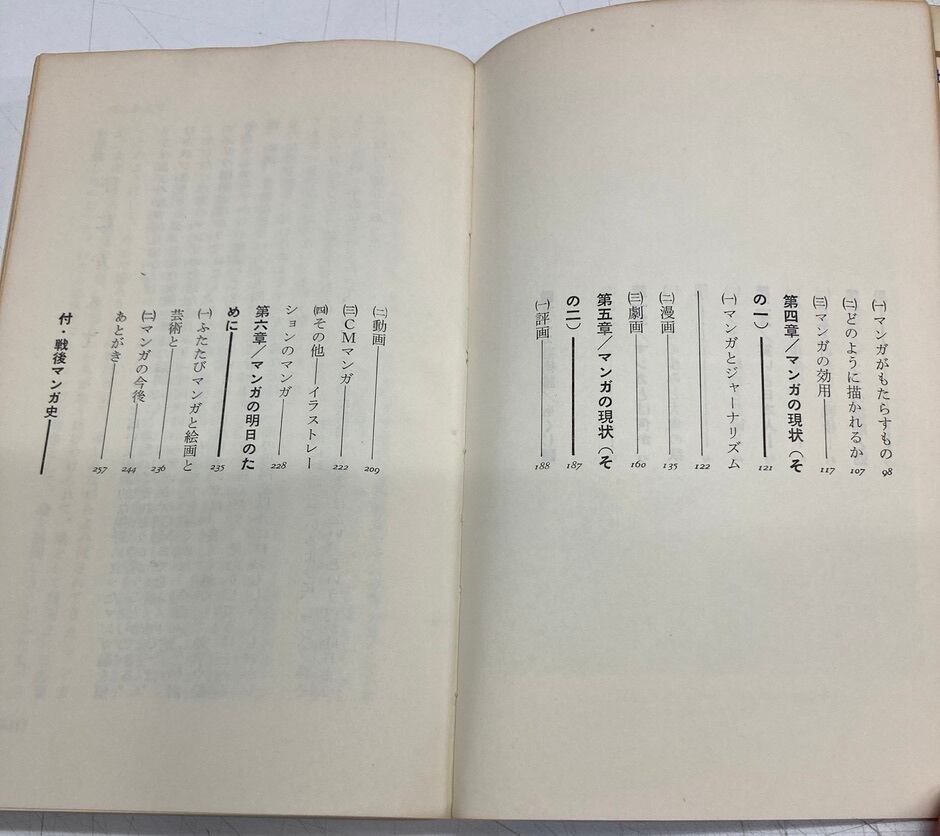 ㈠マンガがもたらすもの 98
㈡どのように描かれるか 107
㈢マンガの効用 117
第四章/マンガの現状(そ
の一) 121
㈠マンガとジャーナリズム
122
㈡漫画 135
㈢劇画 160
第五章/マンガの現状(そ
の二) 187
㈠評画 188
㈡動画 209
㈢CMマンガ 222
㈣その他——イラストレー
ションのマンガ 228
第六章/マンガの明日のた
めに 235
㈠ふたたびマンガと絵画と
芸術と 236
㈡マンガの今後 244
あとがき 257
付・戦後マンガ史